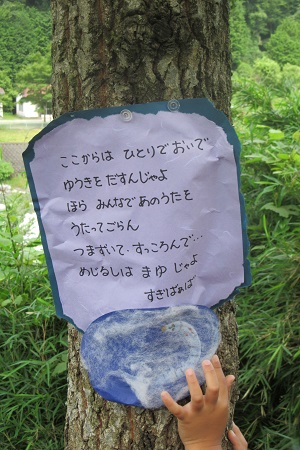 ここからは ひとりで おいで
ゆうきを だすんじゃよ
ほら みんなで あのうたを
うたってごらん
つまずいて、すっころんで…
めじるしは まゆ じゃよ
すぎばぁば